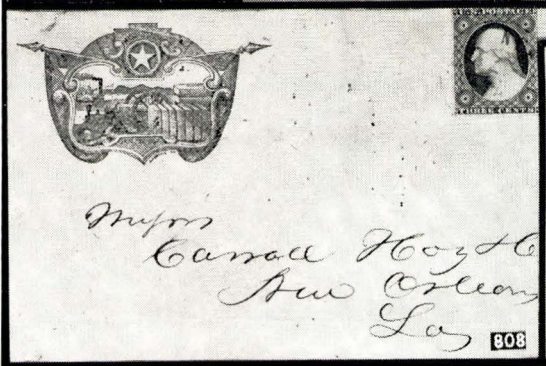 U.S. POSTAGE
THREE CENTS
Messrs
Carroll Hoy & C
New Orleans
La
808